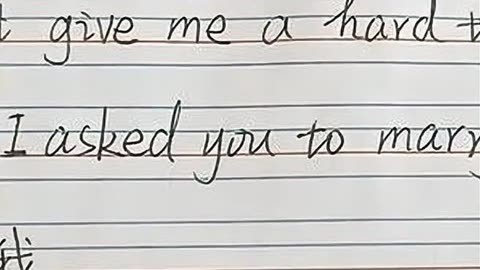 give me a hard
I asked you to marry
我